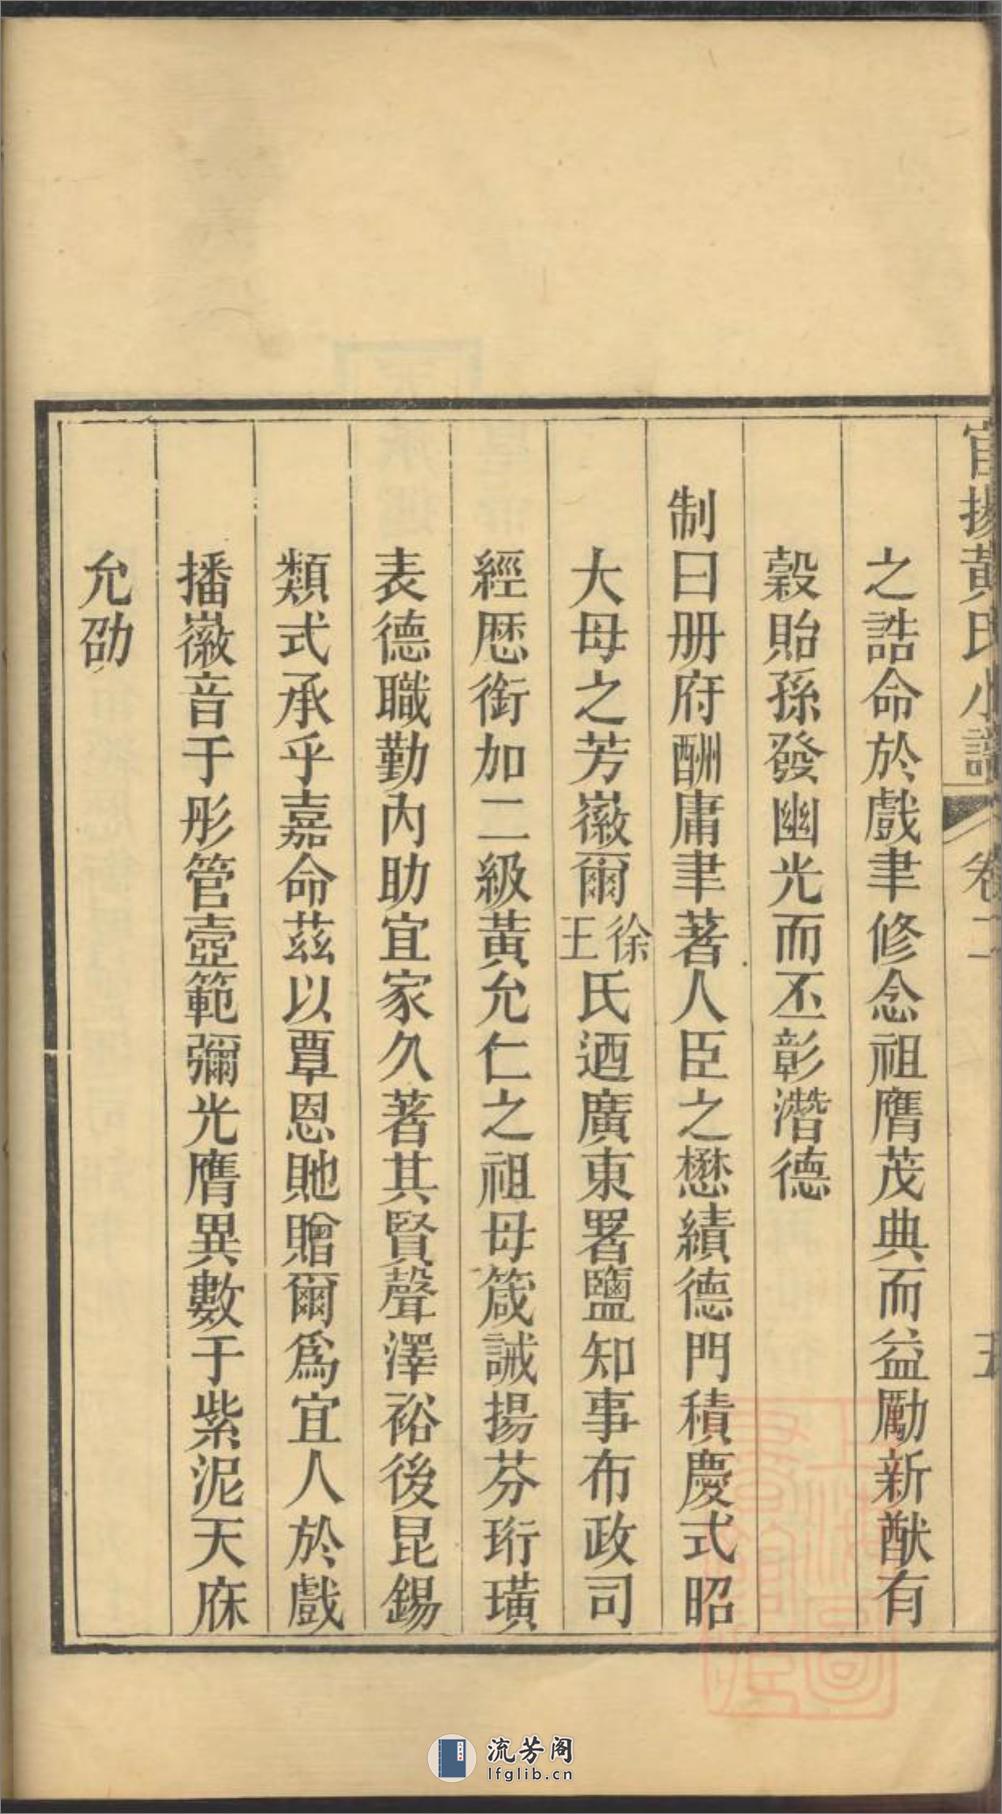 官揚黃氏小譜 卷二 五
之誥命於戲聿修念祖膺茂典而益勵新猷有
穀貽孫發幽光而丕彰潛德
制曰册府酬庸聿著人臣之懋績德門積慶式昭
大母之芳徽爾徐王氏迺廣東署鹽知事布政司
經歷銜加二級黃允仁之祖母箴誡揚芬珩璜
表德職勤內助宜家久著其賢聲澤裕後昆錫
類式承乎嘉命茲以覃恩貤贈爾爲宜人於戲
播徽音于彤管壼範彌光膺異數于紫泥天庥
允劭
流芳阁
lfglib.cn